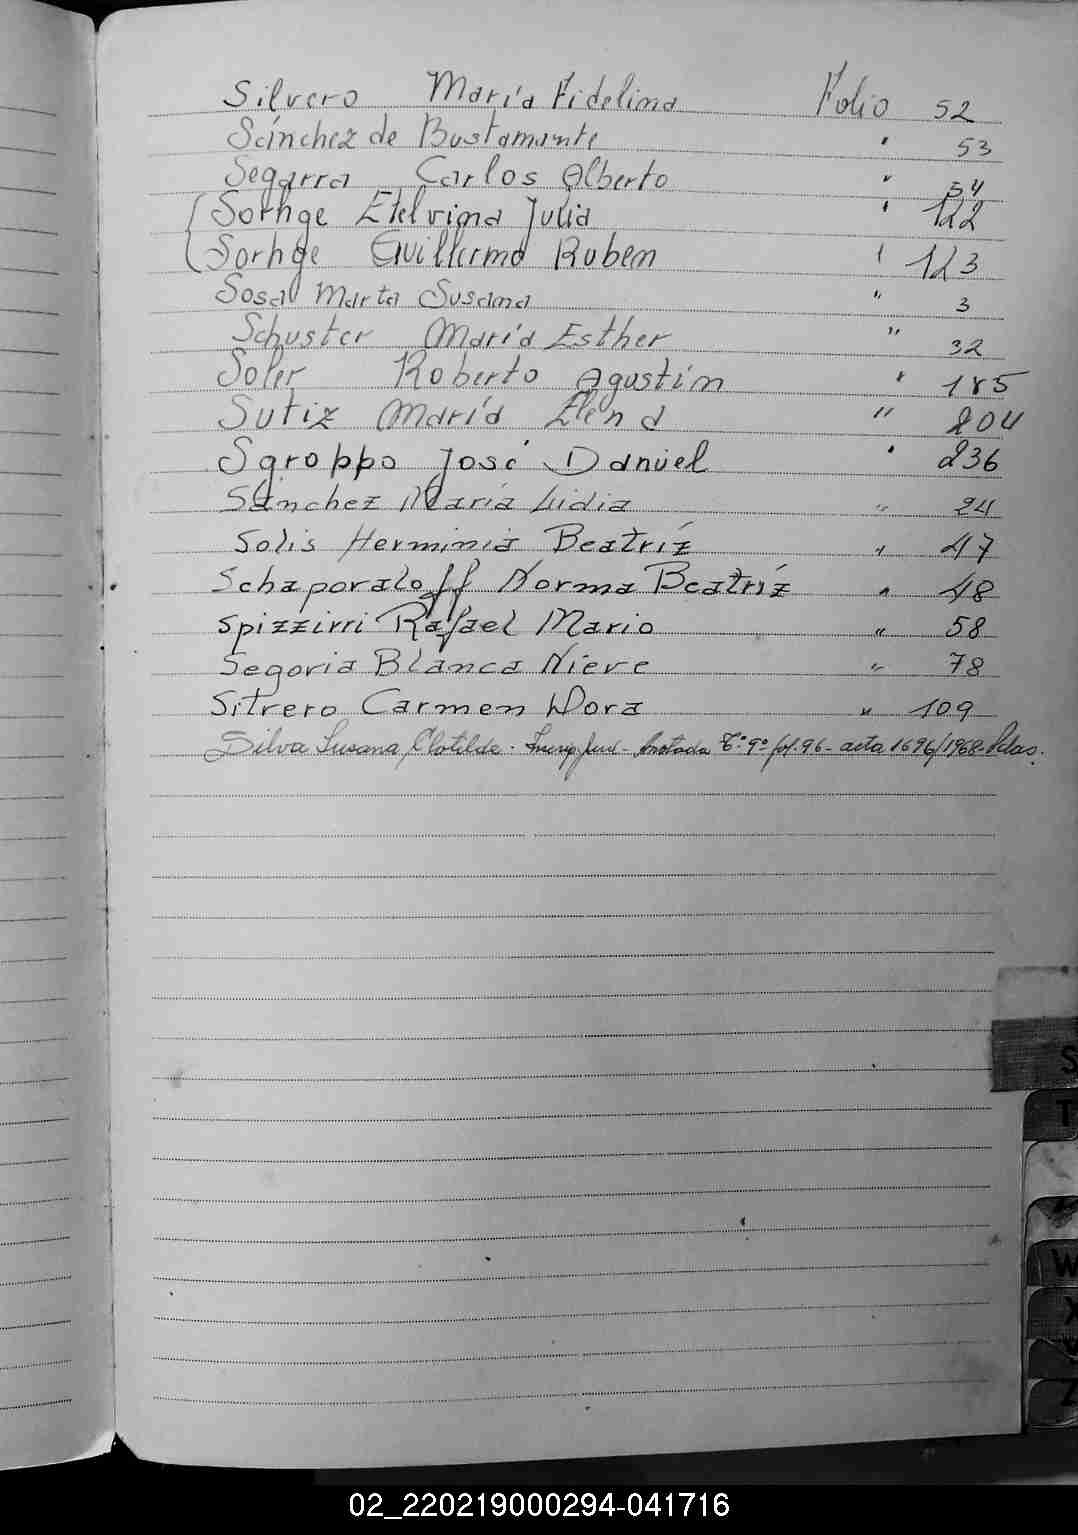 Silvero María Fidelina Folio 52
Sánchez de Bustamante " 53
Segarra Carlos Alberto " 54
Sorhge Etelvina Julia " 122
Sorhge Guillermo Ruben " 123
Sosa Marta Susana " 3
Schuster María Esther " 32
Soler Roberto Agustin " 185
Sutiz María Elena " 204
Sgroppo José Daniel " 236
Sánchez María Lidia " 24
Solis Herminia Beatríz " 47
Schaporaloff Norma Beatríz " 48
Spizzirri Rafael Mario " 58
Segovia Blanca Nieve " 78
Sitrero Carmen Dora " 109
Silva Susana Clotilde. Inscrip Jud - Anotada Tº 9º fol. 96 - acta 1696/1968
S
T
W
X
Y
Z
02_220219000294-041716